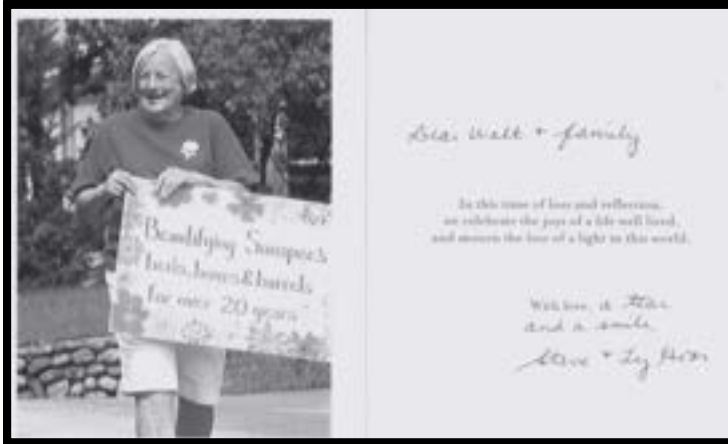 Beautifying Sunapee's
beds, boxes & barrels
for over 20 years
Dear Walt + family
In this time of loss and reflection,
we celebrate the joys of a life well lived,
and mourn the loss of a light in this world.
With love, a tear
and a smile
Steve +